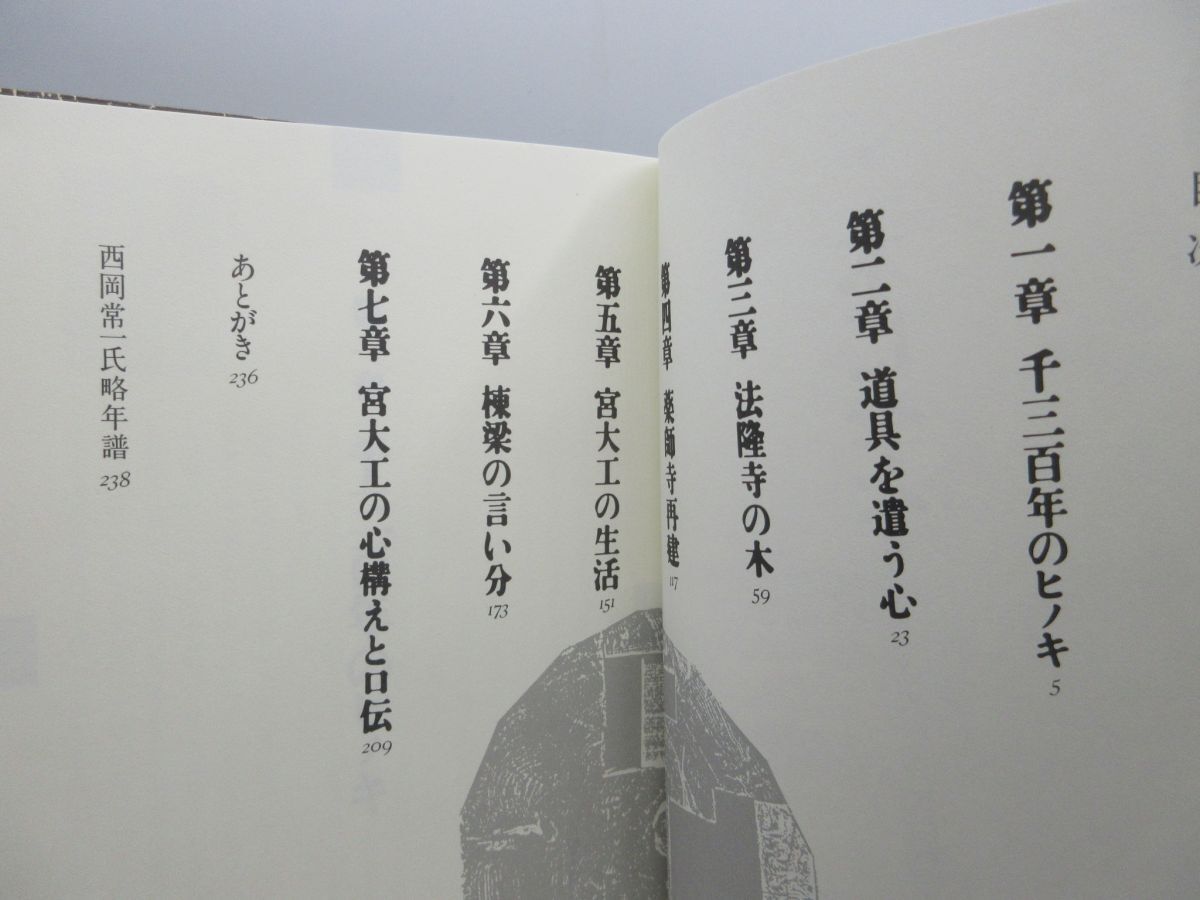 目次
第一章 千三百年のヒノキ 5
第二章 道具を遣う心 23
第三章 法隆寺の木 59
第四章 薬師寺再建 117
第五章 宮大工の生活 151
第六章 棟梁の言い分 173
第七章 宮大工の心構えと口伝 209
あとがき 236
西岡常一氏略年譜 238